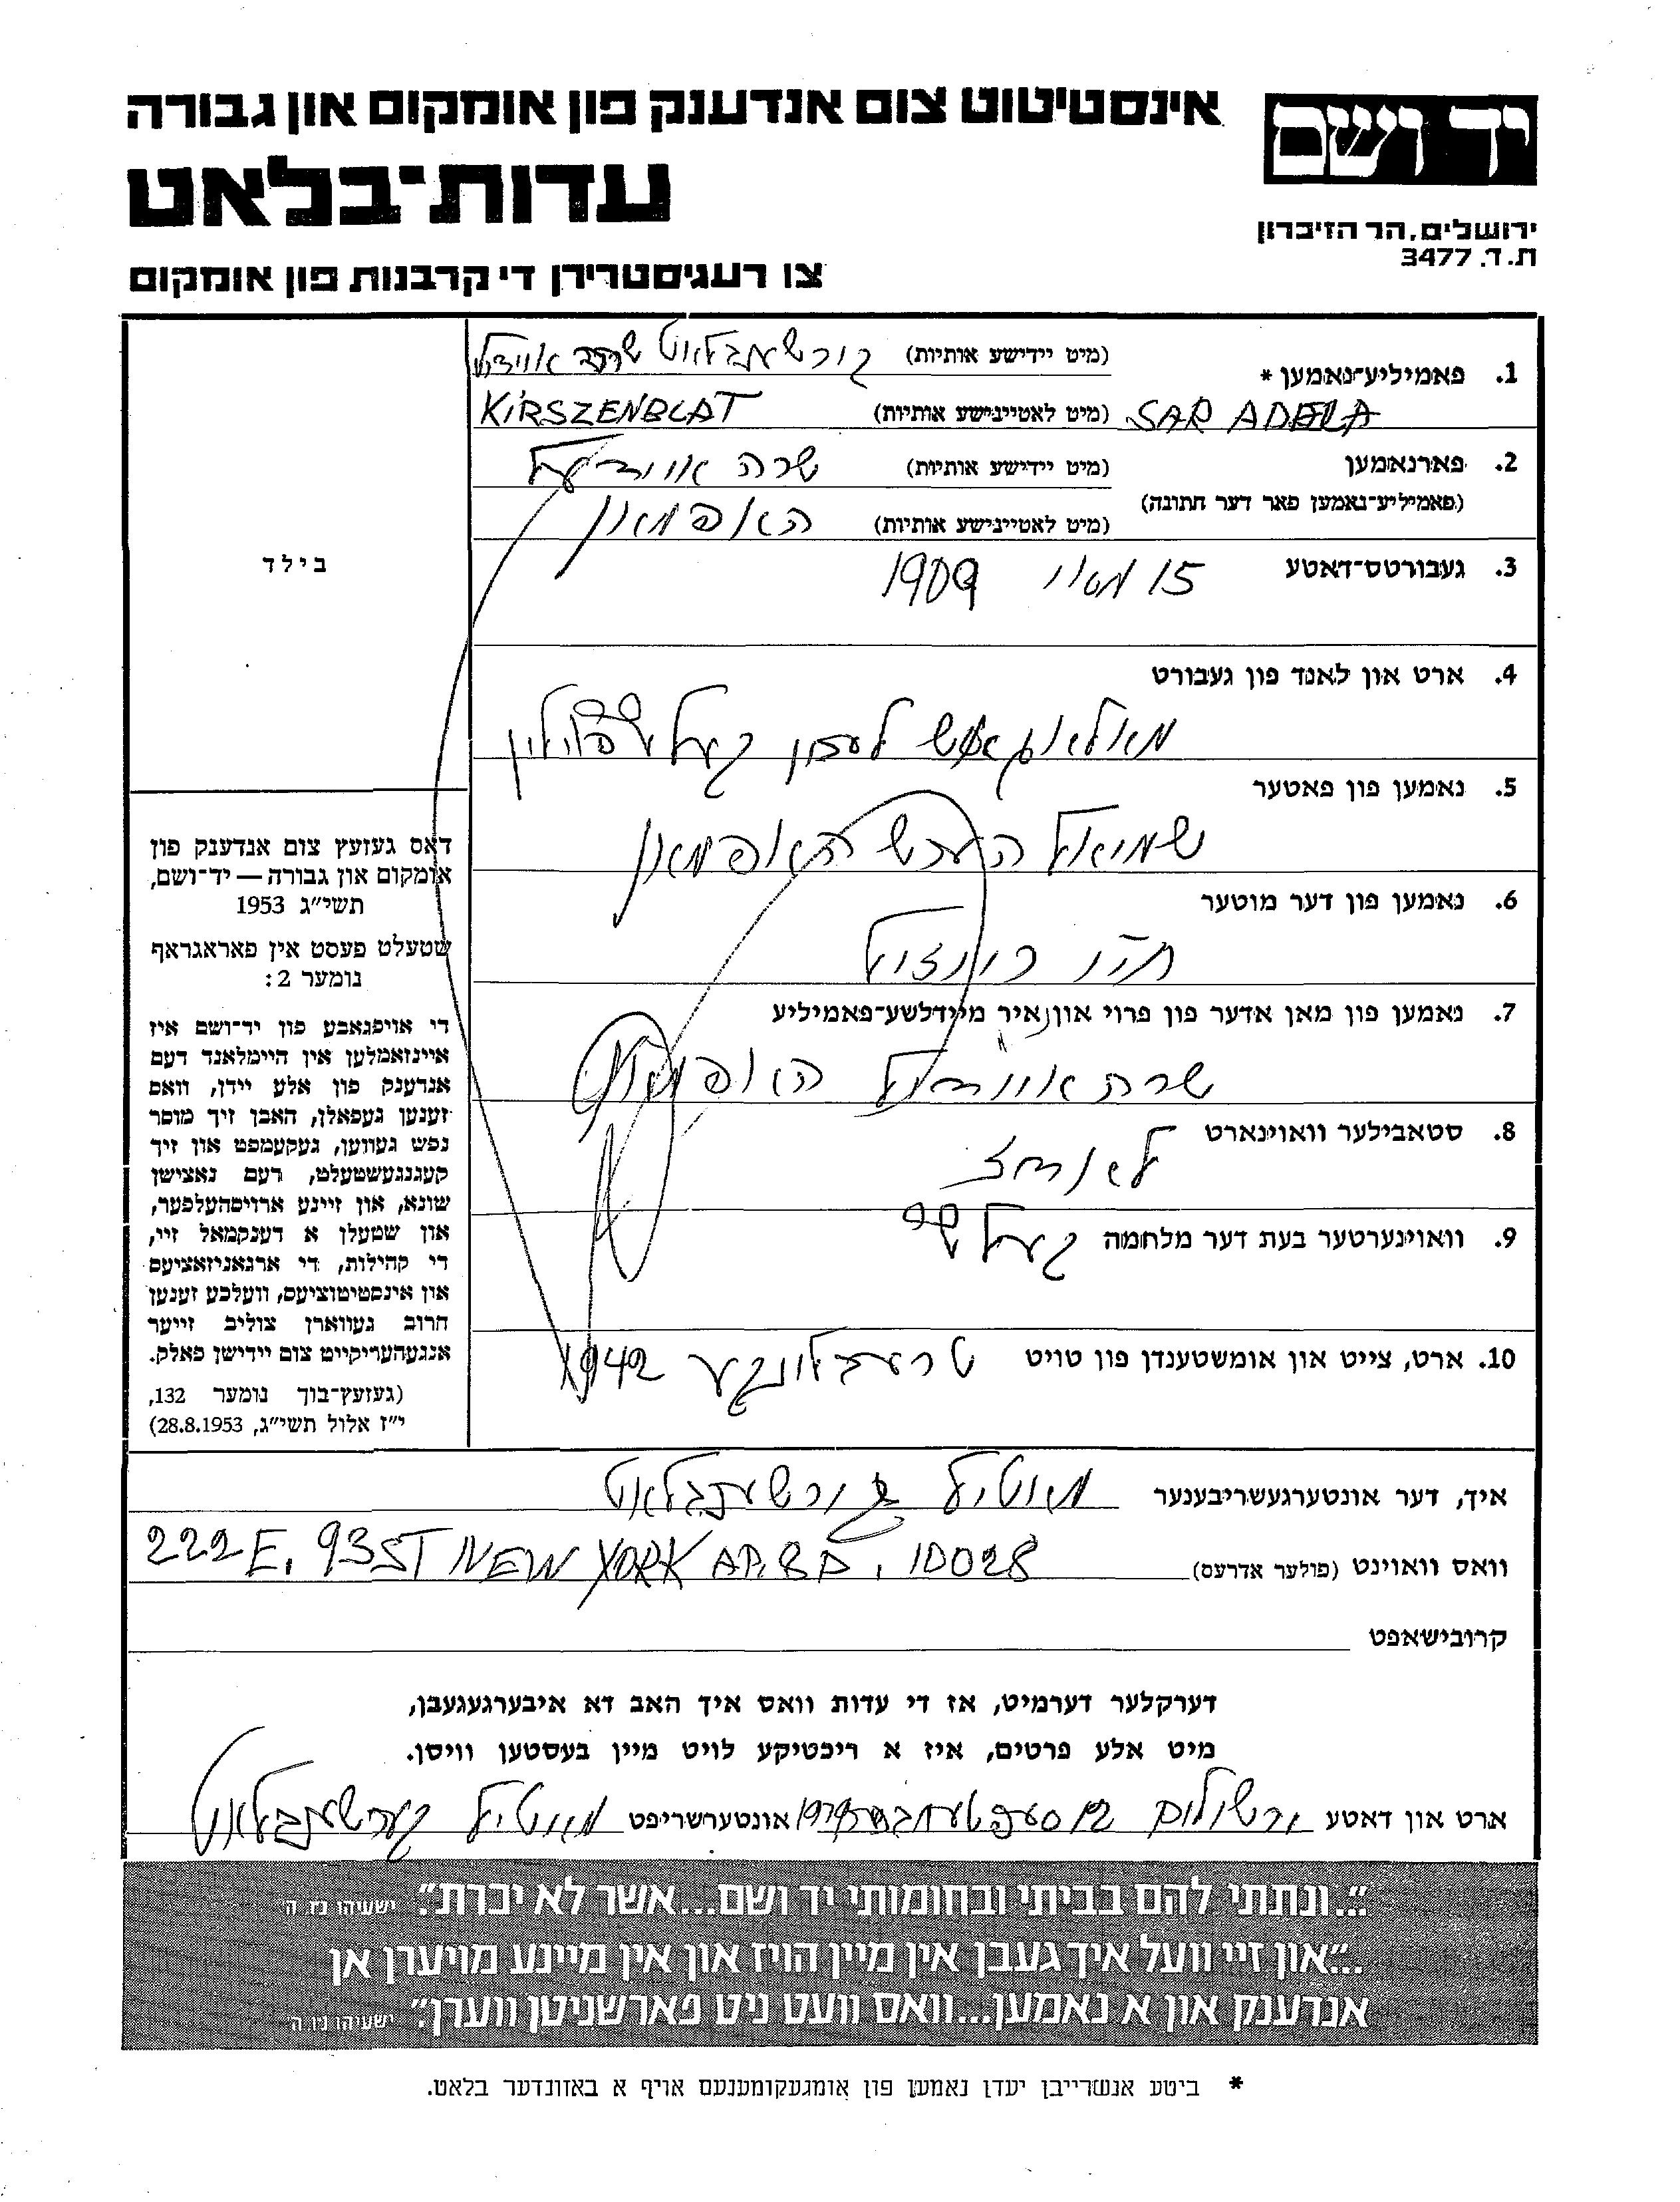 יד ושם
אינסטיטוט צום אנדענק פון אומקום און גבורה
עדות־בלאט
ירושלים, הר הזיכרון
ת.ד. 3477
צו רעגיסטרירן די קרבנות פון אומקום
1. פאמיליע־נאמען *
(מיט יידישע אותיות) קירשענבלאט שרה
(מיט לאטיינישע אותיות) KIRSZENBLAT
SAR ADELA
2. פארנאמען
(מיט יידישע אותיות) שרה
(פאמיליע־נאמען פאר דער חתונה)
(מיט לאטיינישע אותיות) האפמאן
3. געבורטס־דאטע 15 מאי 1909
4. ארט און לאנד פון געבורט
פוילין
5. נאמען פון פאטער
שמואל הערש האפמאן
6. נאמען פון דער מוטער
7. נאמען פון מאן אדער פון פרוי און איר מיידלשע־פאמיליע
שרה האפמאן
8. סטאבילער וואוינארט
לאדז
9. וואוינערטער בעת דער מלחמה
10. ארט, צייט און אומשטענדן פון טויט טרעבלינקע 1942
בילד
דאס געזעץ צום אנדענק פון
אומקום און גבורה — יד־ושם,
תשי״ג 1953
שטעלט פעסט אין פאראגראף
נומער 2:
די אויפגאבע פון יד־ושם איז
איינזאמלען אין היימלאנד דעם
אנדענק פון אלע יידן, וואס
זענען געפאלן, האבן זיך מוסר
נפש געווען, געקעמפט און זיך
קעגנגעשטעלט, דעם נאצישן
שונא, און זיינע ארויסהעלפער,
און שטעלן א דענקמאל זיי,
די קהילות, די ארגאניזאציעס
און אינסטיטוציעס, וועלכע זענען
חרוב געווארן צוליב זייער
אנגעהעריקייט צום יידישן פאלק.
(געזעץ־בוך נומער 132,
י״ז אלול תשי״ג, 28.8.1953)
איך, דער אונטערגעשריבענער מאטיל קירשענבלאט
וואס וואוינט (פולער אדרעס) 222 E. 93 ST NEW YORK AP. 8D, 10028
קרובישאפט
דערקלער דערמיט, אז די עדות וואס איך האב דא איבערגעגעבן,
מיט אלע פרטים, איז א ריכטיקע לויט מיין בעסטען וויסן.
ארט און דאטע ירשולים סעפטעמבער 1979 אונטערשריפט מאטיל קערשענבלאט
״...ונתתי להם בביתי ובחומותי יד ושם...אשר לא יכרת״. ישעיהו נו, ה
״...און זיי וועל איך געבן אין מיין הויז און אין מיינע מויערן אן
אנדענק און א נאמען...וואס וועט ניט פארשניטן ווערן״. ישעיהו נו, ה
* ביטע אנשרייבן יעדן נאמען פון אומגעקומענעם אויף א באזונדער בלאט.